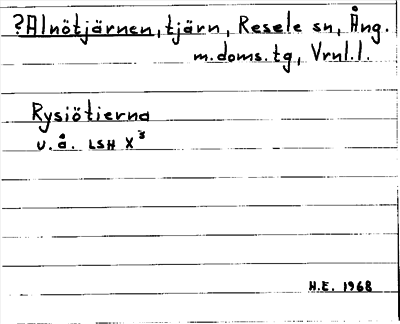 ?Alnötjärnen, tjärn, Resele sn, Ång.
m.doms.tg, Vrnl.l.
Rysiötierna
u.å. LSH X³
H.E. 1968